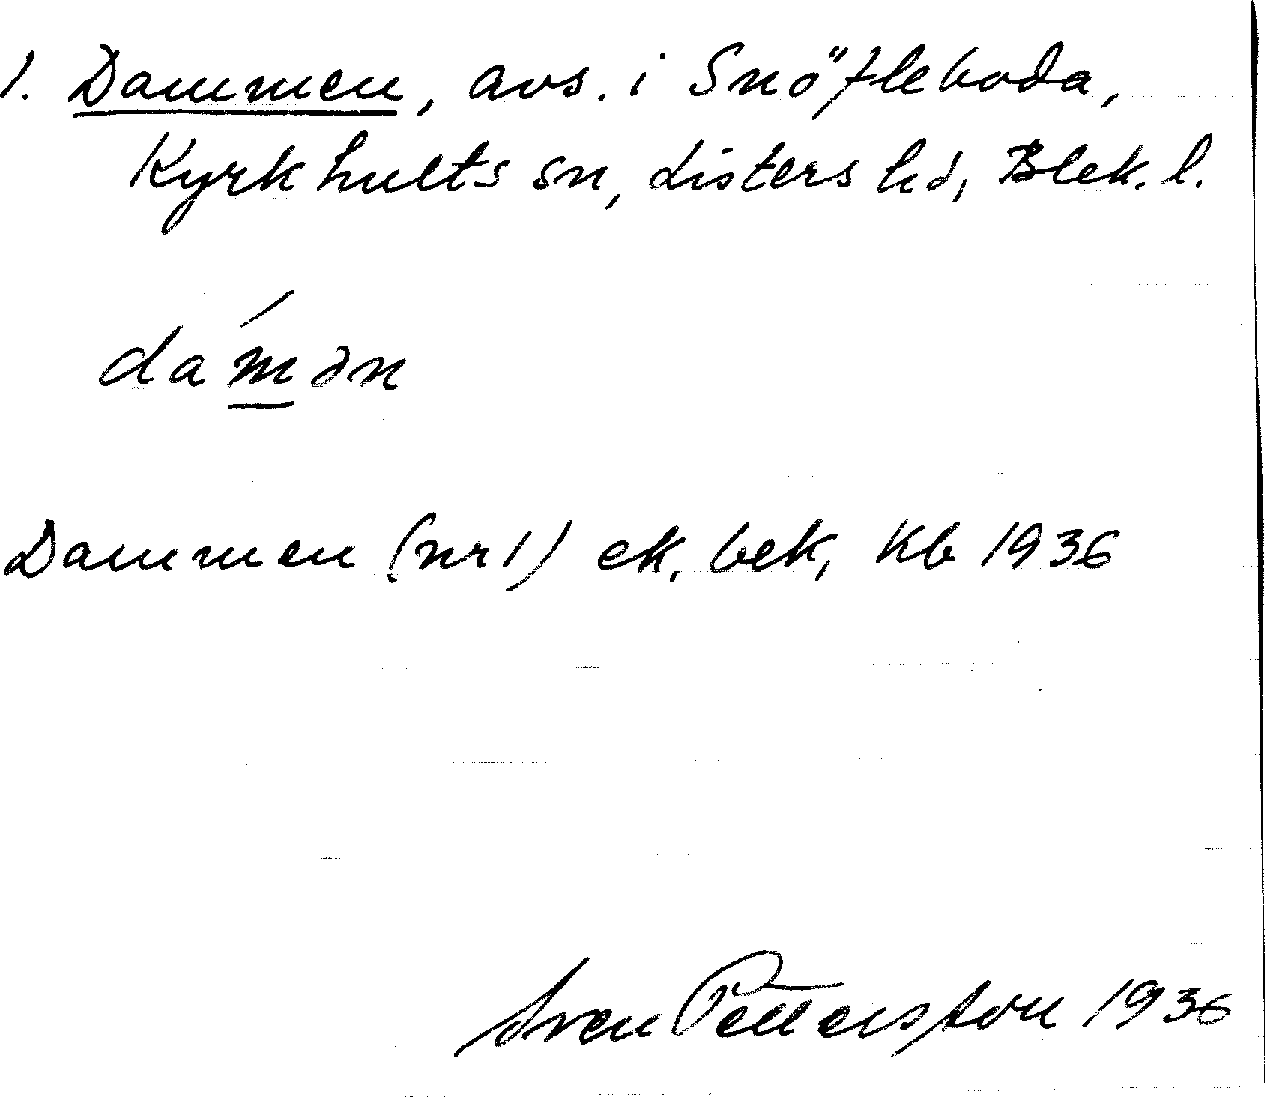 1. Dammen, avs. i Snöfleboda,
Kyrkhults sn, Listers hd, Blek. l.
daḿ̲ən
Dammen (nr 1) ek. bek, Kb 1936
Sven Pettersson 1936